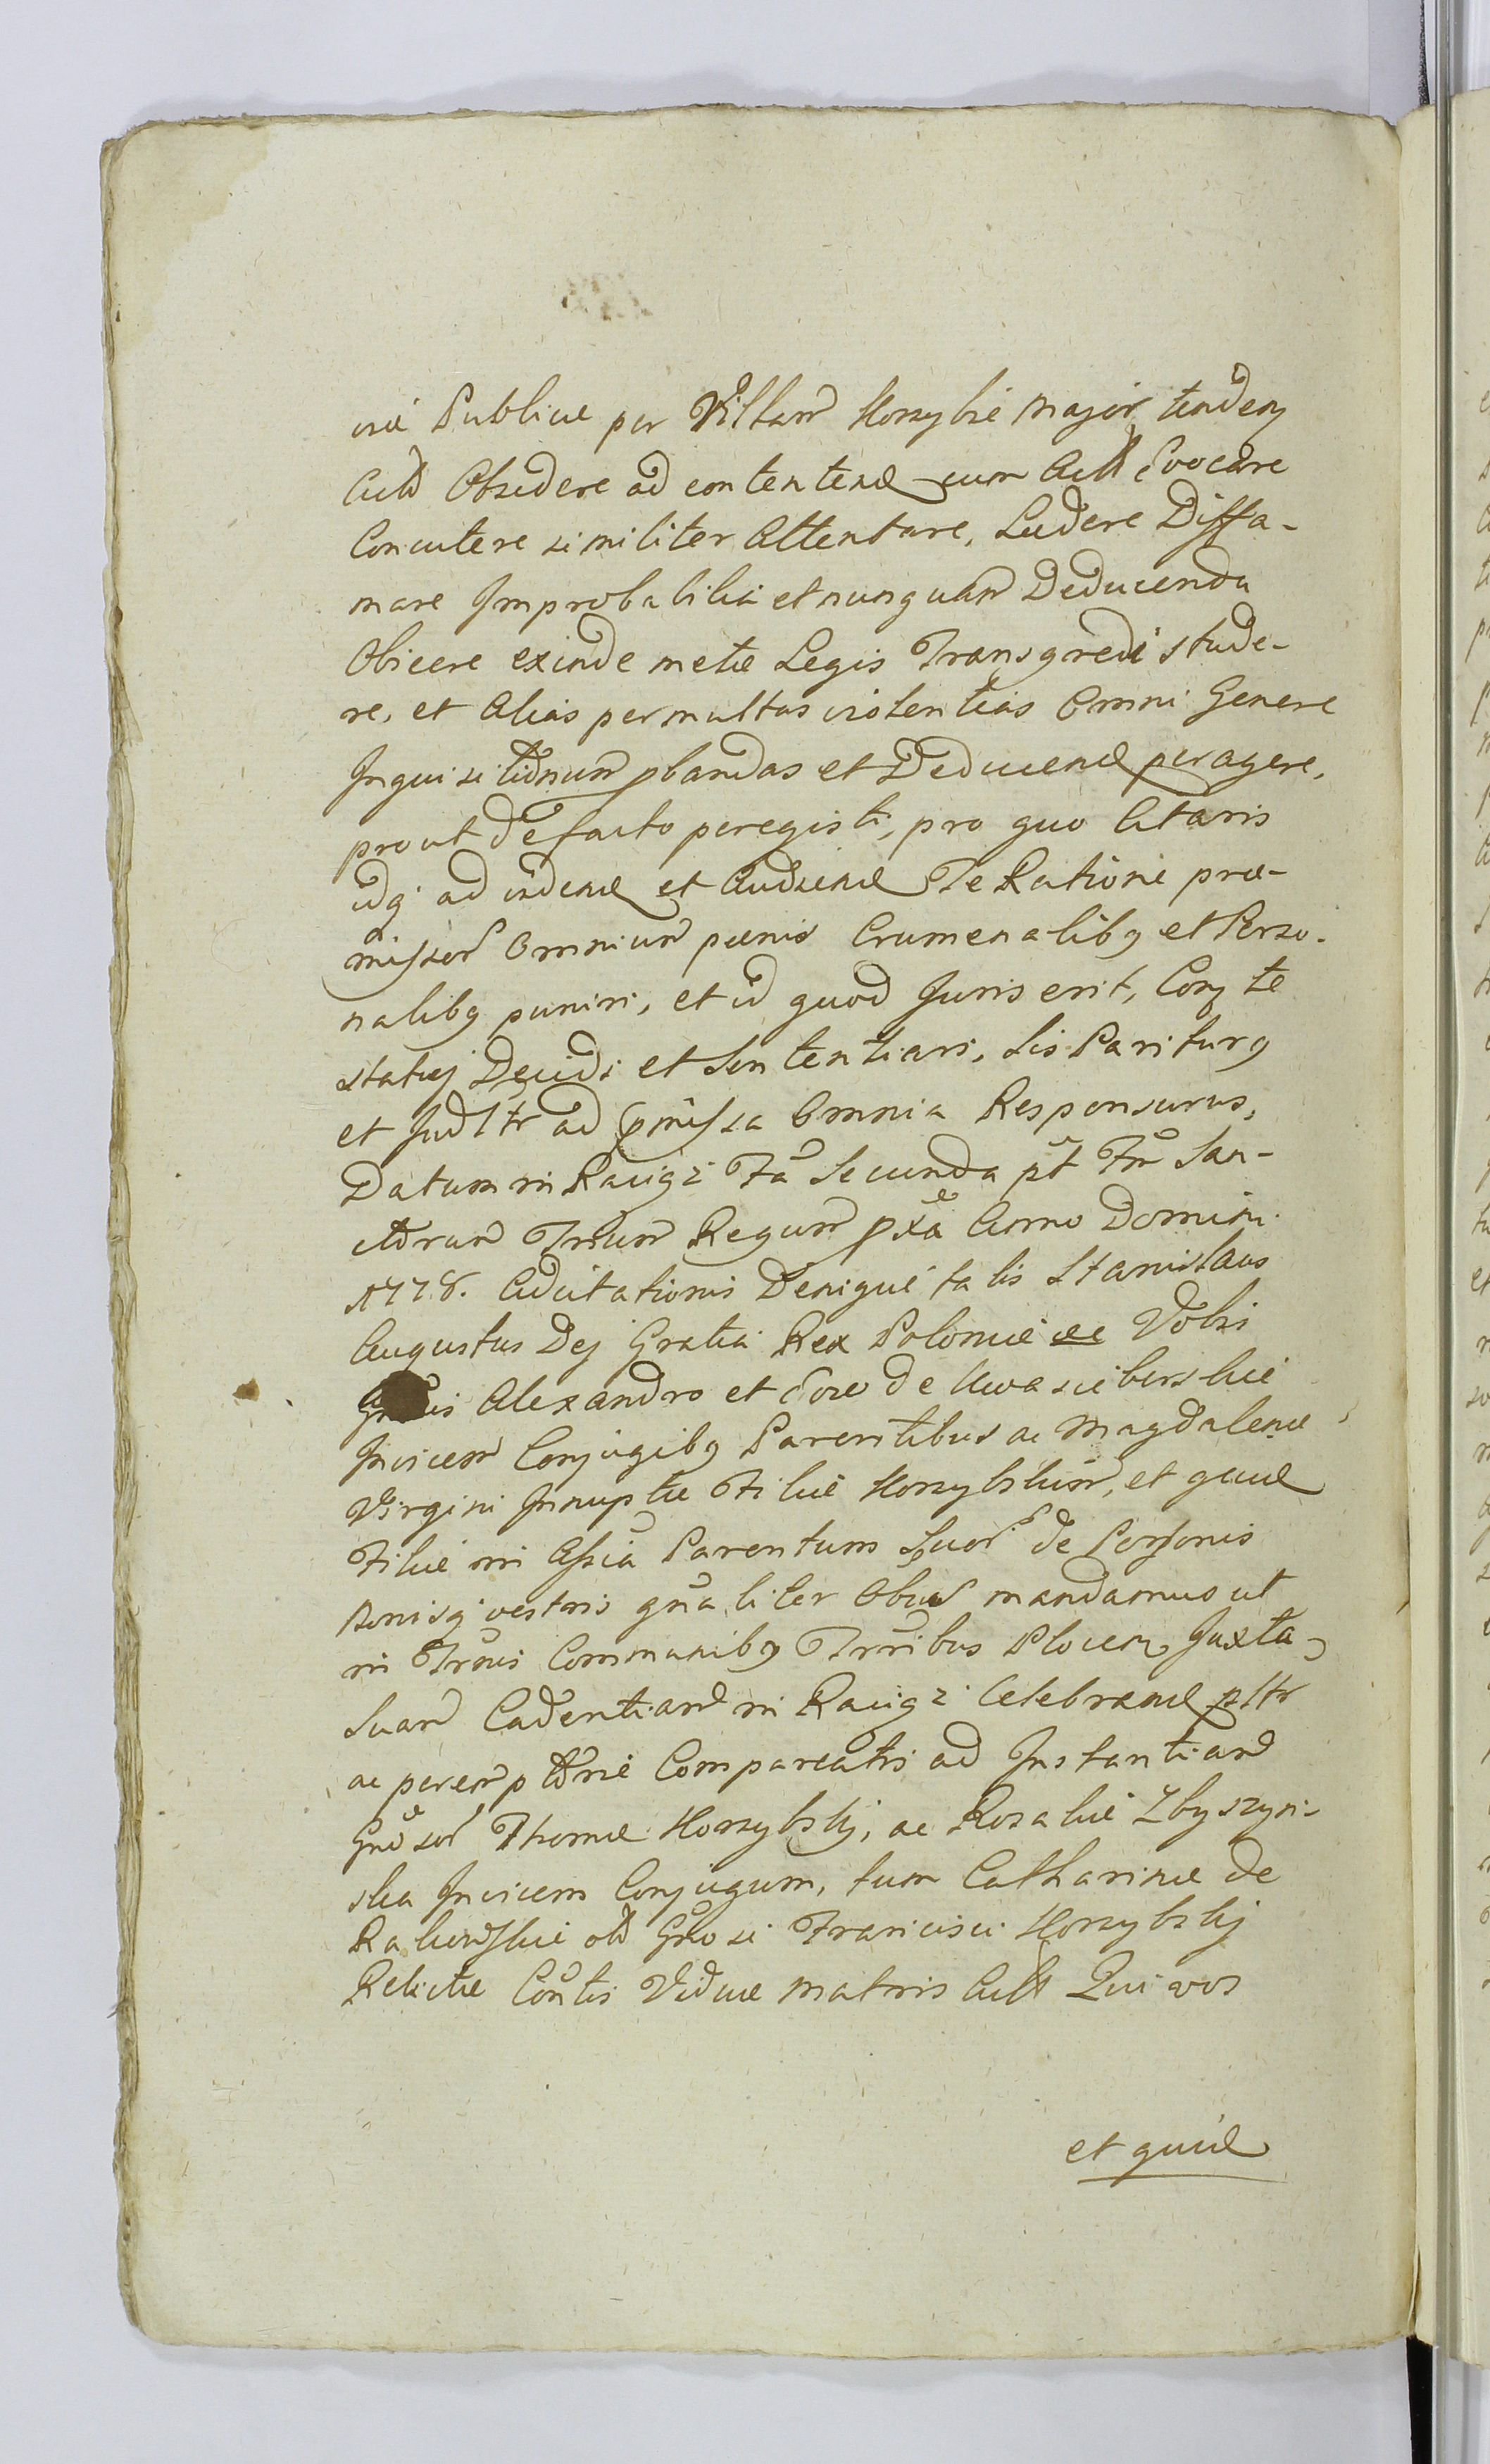 viæ Publicæ per Villam Korzybie major tendeñ
Actt Obsidere ad contentend cum Actt Evocare
Concutere similiter Attentare, Lædere Diffa-
mare Improbabilia et nunquam Deducenda
Obicere exinde metæ Legis Transgredi stude-
re, et Alias permultas violentias Omni Genere
Inquisitionum pbandas et Deducend peragere,
prout de facto peregisti, pro quo Citaris
idq ad videnđ et Audiend Te Ratione præ-
missor Omnium pænis Crumenalibq et Perso-
nalibq puniri, et id quod Juris erit, Con te
statuj Decidi et Sententiari, Sis Pariturq
et Judltr ad pmissa Omnia Responsurus,
Datum in Raciąż Fa Secunda pt Fm San-
ctorum Trium Regum pxa Anno Domini
1778. Adcitationis Denique talis Stanislaus
Augustus Dej Gratia Rex Poloniæ &c Vobis
Alexandro et Evæ de
Invicem Conjugibq Parentibus ac Magdalenæ
Virgini Innuptæ Filiæ Korzybskim, et quæ
Filiæ in Assia Parentum Suor de Personis
Bonisq vestris gnaliter Obus mandamus ut
in Trmis Communibq Trribus Plocen Juxta
Suam Cadentiam in Raciąż Celebrand pltr
ac peremptorie Compareatis ad Instantiam
Gnosor Thomæ Korzybskj, ac Rosaliæ Zbyszyn-
ska Invicem Conjugum, tum Catharinæ de
olt Gnosi Francisci Korzybskj
Relictæ Contis Viduæ matris Actt Qui vos
et quid